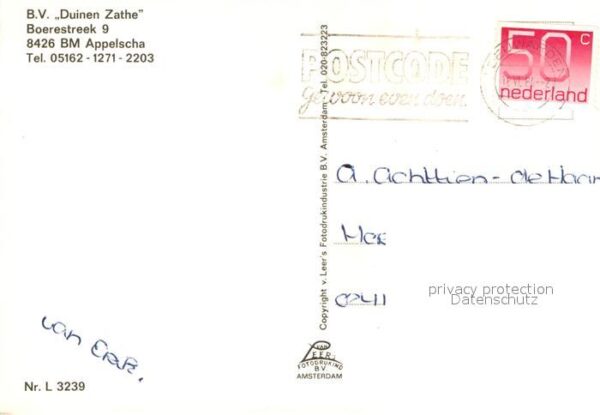 B.V. „Duinen Zathe"
Boerestreek 9
8426 BM Appelscha
Tel. 05162 - 1271 - 2203
POSTCODE
gewoon even doen.
50 c
nederland
Copyright v. Leer's Fotodrukindustrie B.V. Amsterdam - Tel. 020-823223
A.
privacy protection
Datenschutz
van
VAN
LEER's
FOTODRUKIND
B.V.
AMSTERDAM
Nr. L 3239